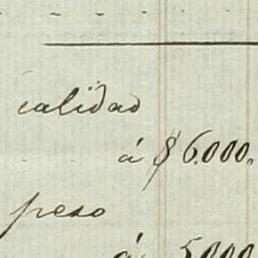 calidad
á $ 6.000.
peso
á 5.000